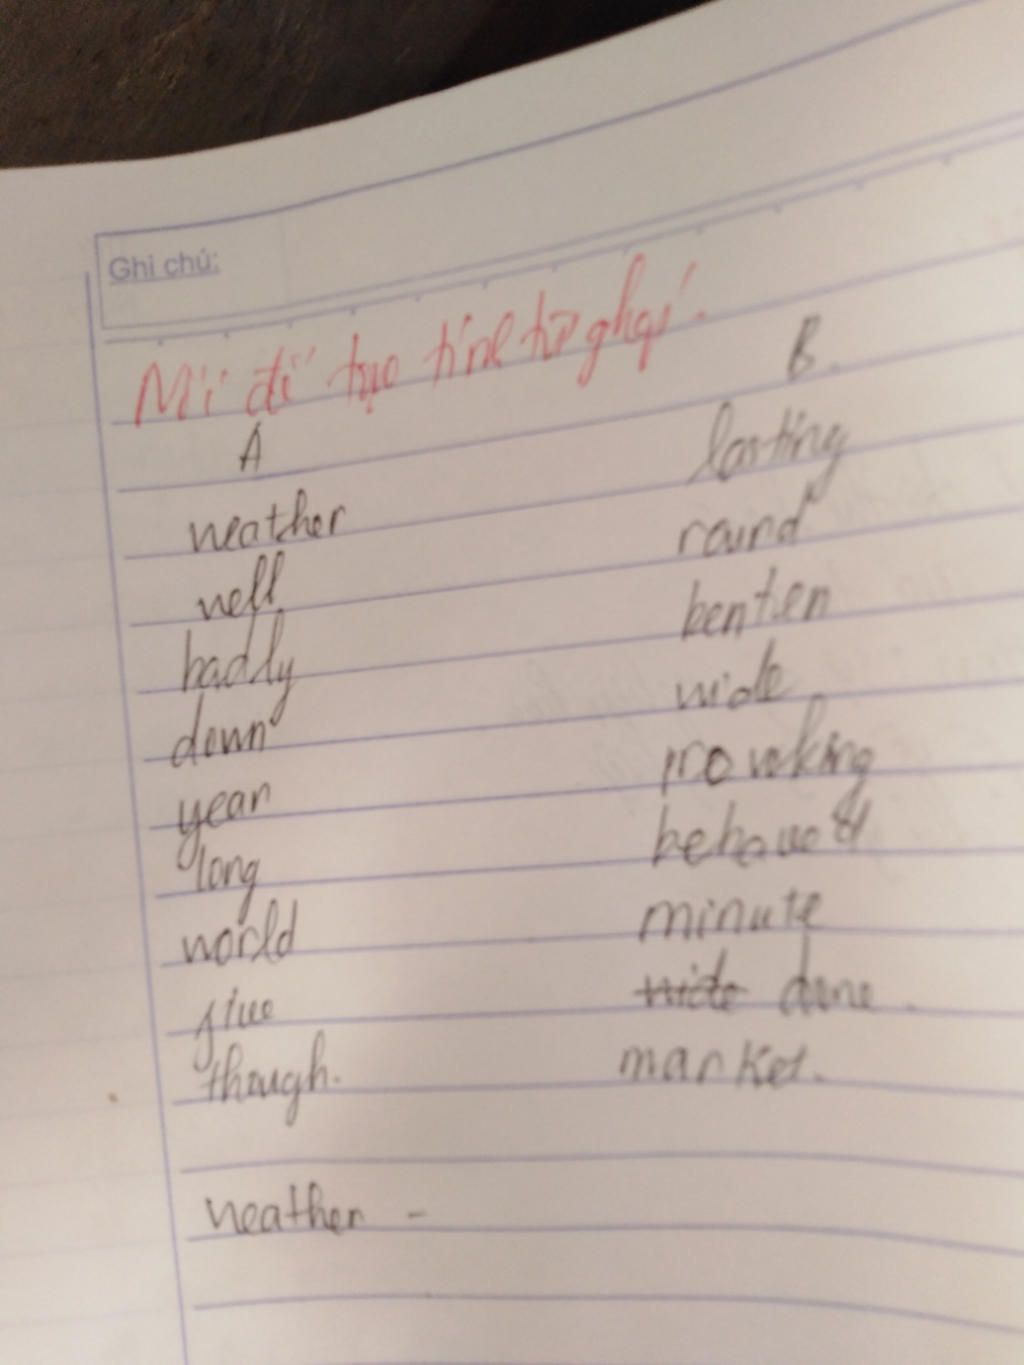 Ghi chú:
Nối để tạo tính từ ghép.
A B.
weather lasting
well round
badly beaten
down wide
year provoking
long behaved
world minute
five done.
though. market.
weather -